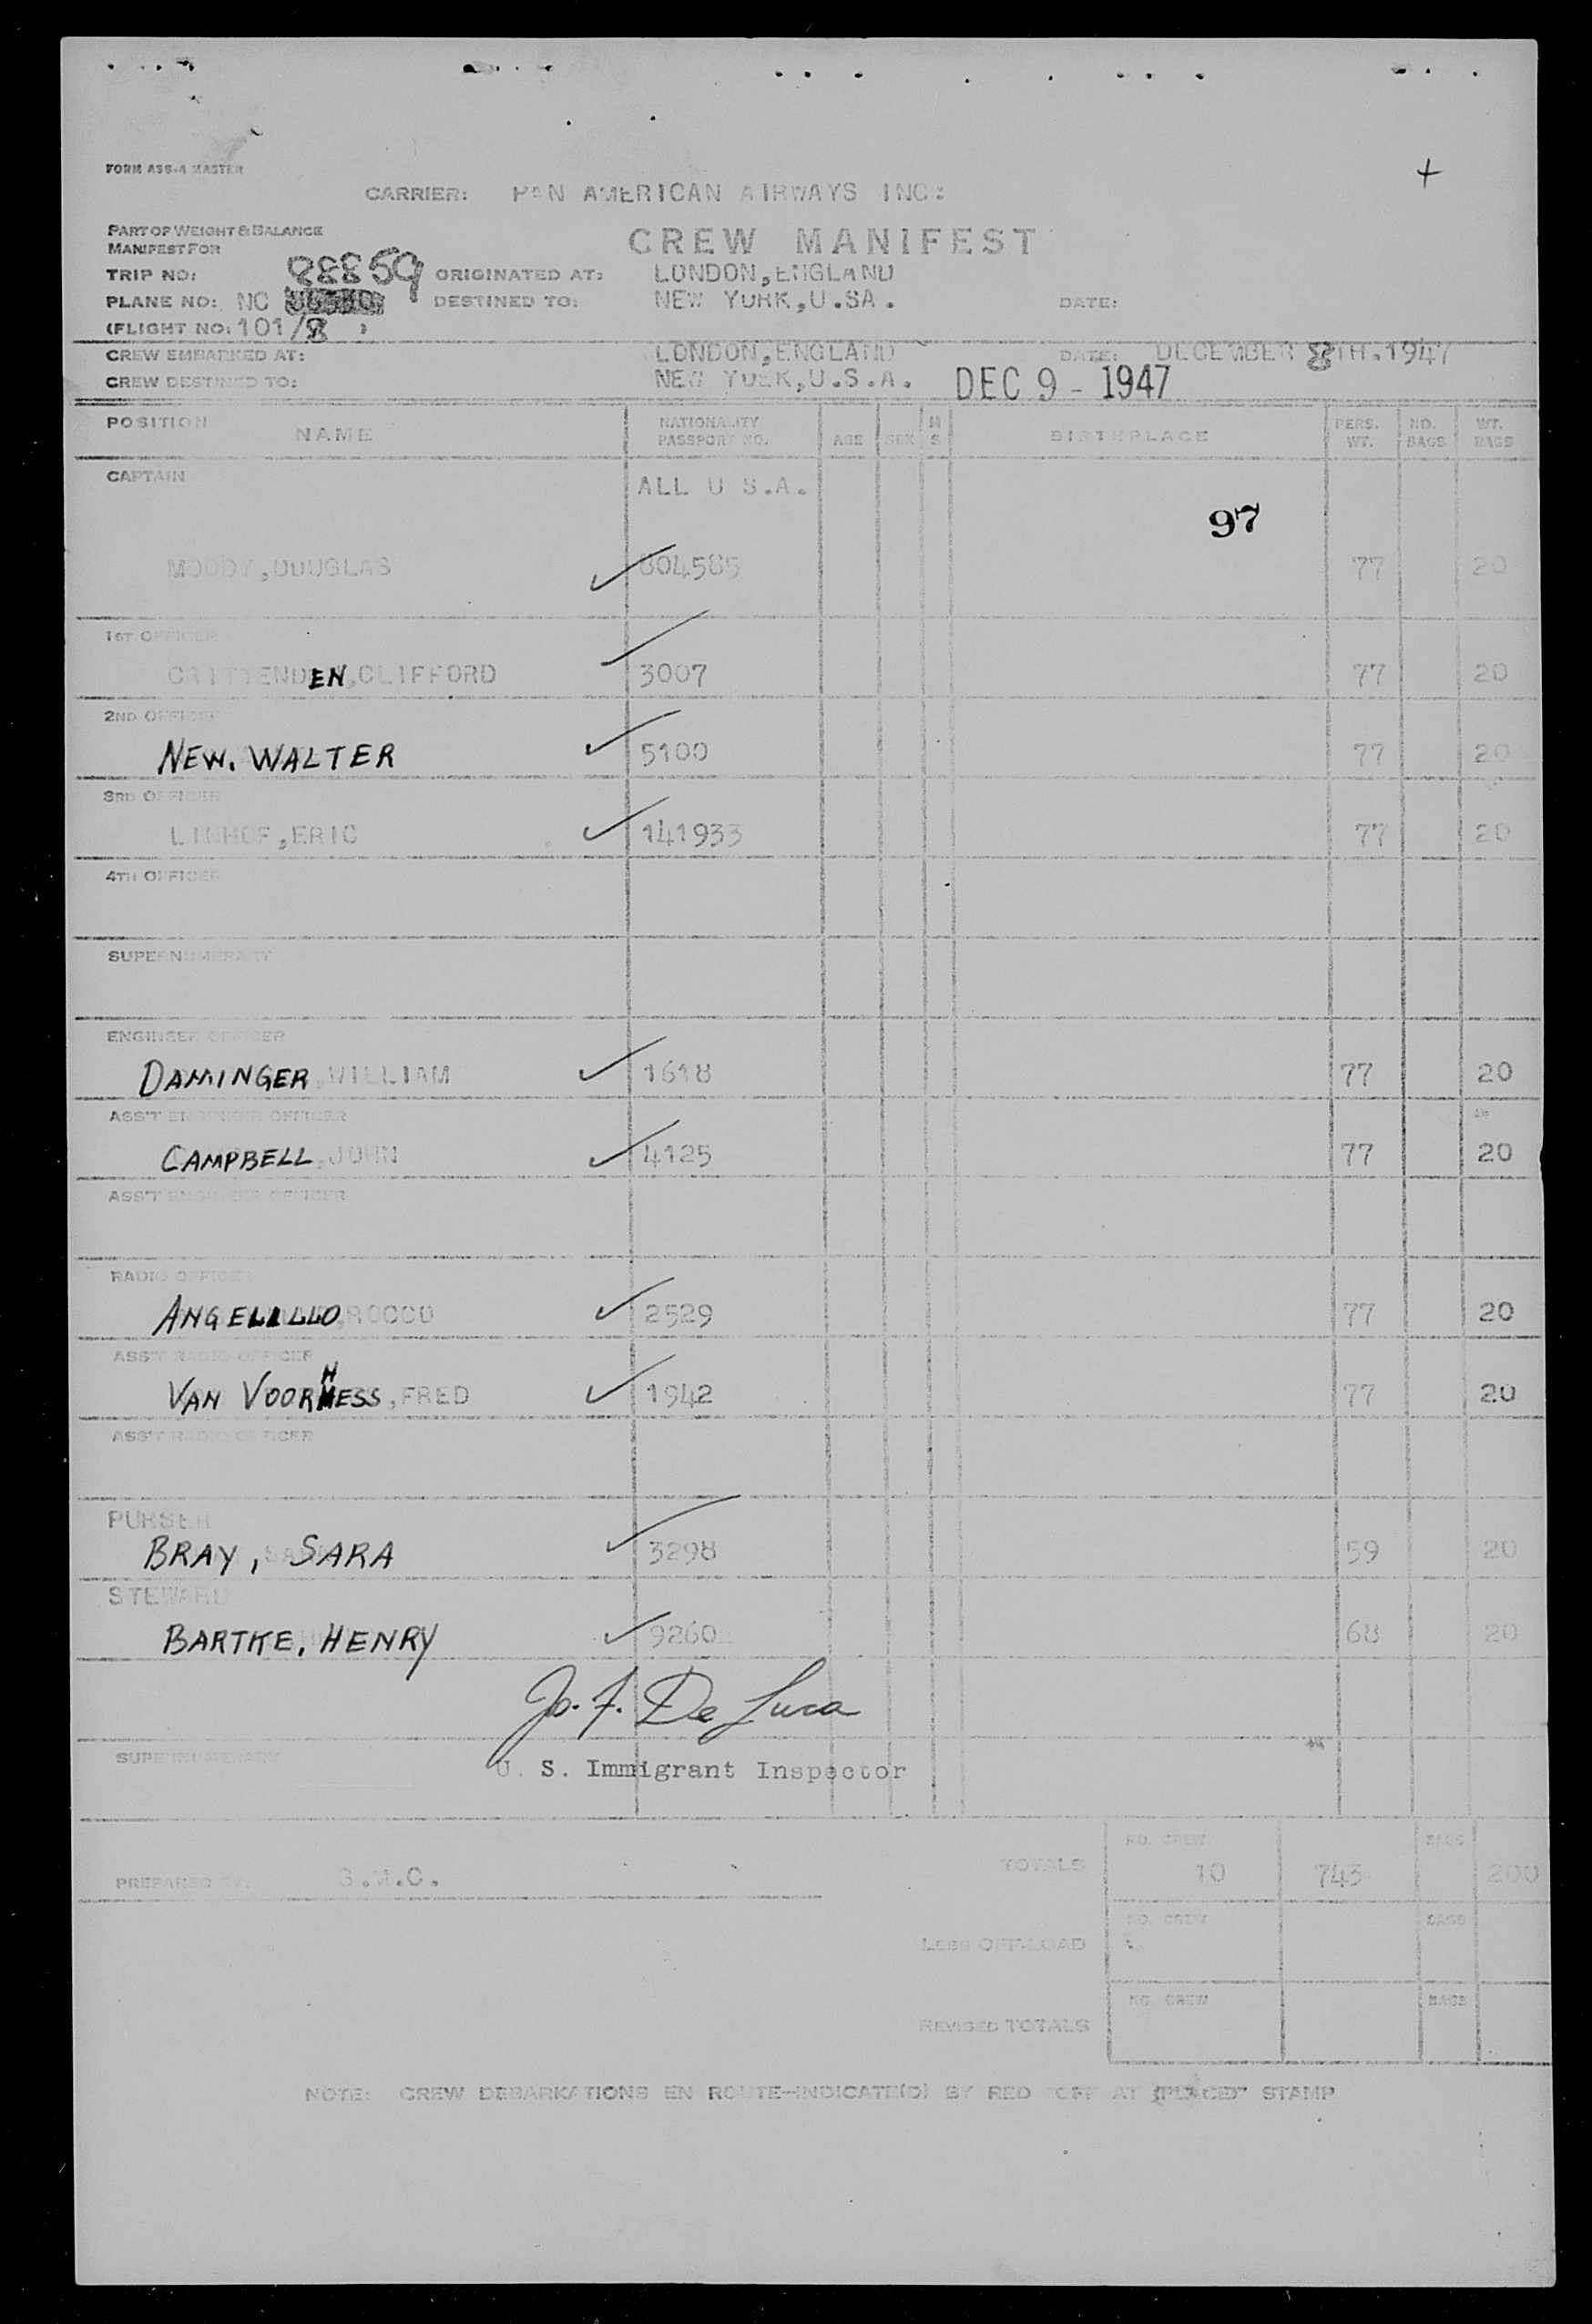 FORM ASS-A MASTER
+
CARRIER: PAN AMERICAN AIRWAYS INC:
PART OF WEIGHT & BALANCE
MANIFEST FOR
CREW MANIFEST
TRIP NO: 88859 ORIGINATED AT: LONDON, ENGLAND
PLANE NO: NC DESTINED TO: NEW YORK, U.SA. DATE:
(FLIGHT NO: 101/8 )
CREW EMBARKED AT: LONDON, ENGLAND DATE: DECEMBER 8TH. 1947
CREW DESTINED TO: NEW YORK, U.S.A. DEC 9 - 1947
POSITION NAME NATIONALITY PASSPORT NO. AGE SEX M S BIRTHPLACE PERS. WT. NO. BAGS WT. BAGS
CAPTAIN ALL U S.A.
97
MOODY, DOUGLAS 804585 77 20
1ST OFFICER
CRITTENDEN, CLIFFORD 3007 77 20
2ND OFFICER
NEW. WALTER 5100 77 20
3RD OFFICER
LINHOF, ERIC 141933 77 20
4TH OFFICER
SUPERNUMERARY
ENGINEER OFFICER
DAMINGER, WILLIAM 1618 77 20
ASS'T ENGINEER OFFICER
CAMPBELL, JOHN 4125 77 20
ASS'T ENGINEER OFFICER
RADIO OFFICER
ANGELILLO, ROCCO 2529 77 20
ASS'T RADIO OFFICER
VAN VOORHESS, FRED 1942 77 20
ASS'T RADIO OFFICER
PURSER
BRAY, SARA 3298 59 20
STEWARD
BARTKE, HENRY 9260 68 20
Jo. F. De Luca
SUPERNUMERARY U. S. Immigrant Inspector
NO. CREW BAGS
PREPARED BY: G.M.C. TOTALS 10 743 200
NO. CREW BAGS
LESS OFF-LOAD
NO. CREW BAGS
REVISED TOTALS
NOTE: CREW DEBARKATIONS EN ROUTE-INDICATE(D) BY RED "OFF AT (PLACE)" STAMP